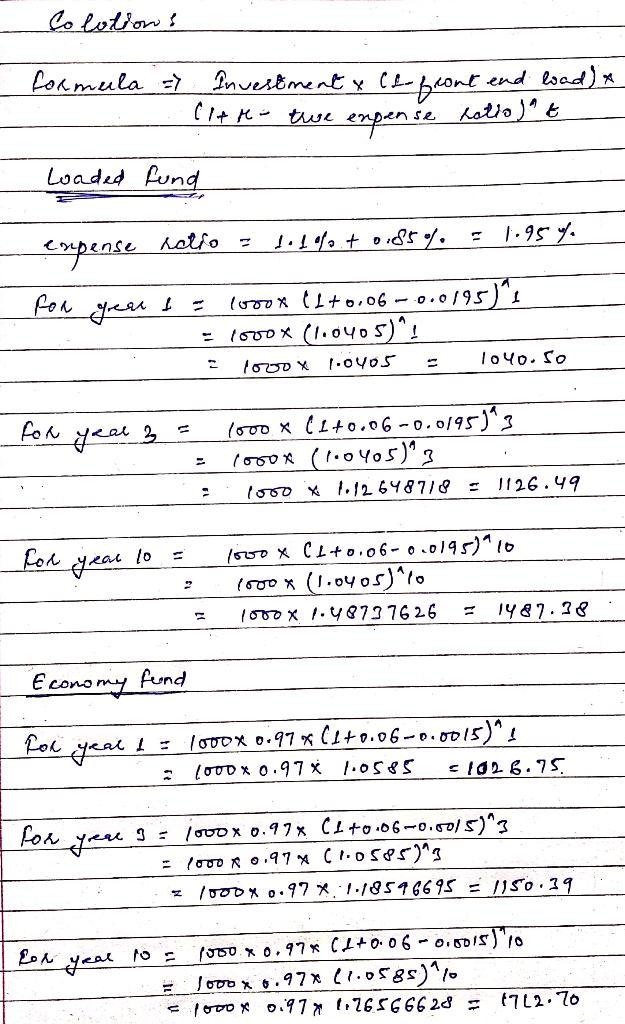 Solution :
Formula => Investment x (1-front end load) x
(1+r- true expense ratio)^t
Loaded fund
expense ratio = 1.1% + 0.85% = 1.95 %
For year 1 = 1000x (1+0.06 - 0.0195)^1
= 1000x (1.0405)^1
= 1000 x 1.0405 = 1040.50
For year 3 = 1000 x (1+0.06 - 0.0195)^3
= 1000x (1.0405)^3
= 1000 x 1.12648718 = 1126.49
For year 10 = 1000 x (1+0.06-0.0195)^10
= 1000 x (1.0405)^10
= 1000 x 1.48737626 = 1487.38
Economy fund
For year 1 = 1000x 0.97 x (1+0.06-0.0015)^1
= 1000x 0.97 x 1.0585 = 1026.75.
For year 3 = 1000x 0.97x (1+0.06-0.0015)^3
= 1000 x 0.97 x (1.0585)^3
= 1000x 0.97 x 1.18596695 = 1150.39
For year 10 = 1000 x 0.97x (1+0.06 - 0.0015)^10
= 1000x 0.97x (1.0585)^10
= 1000x 0.97x 1.76566628 = 1712.70